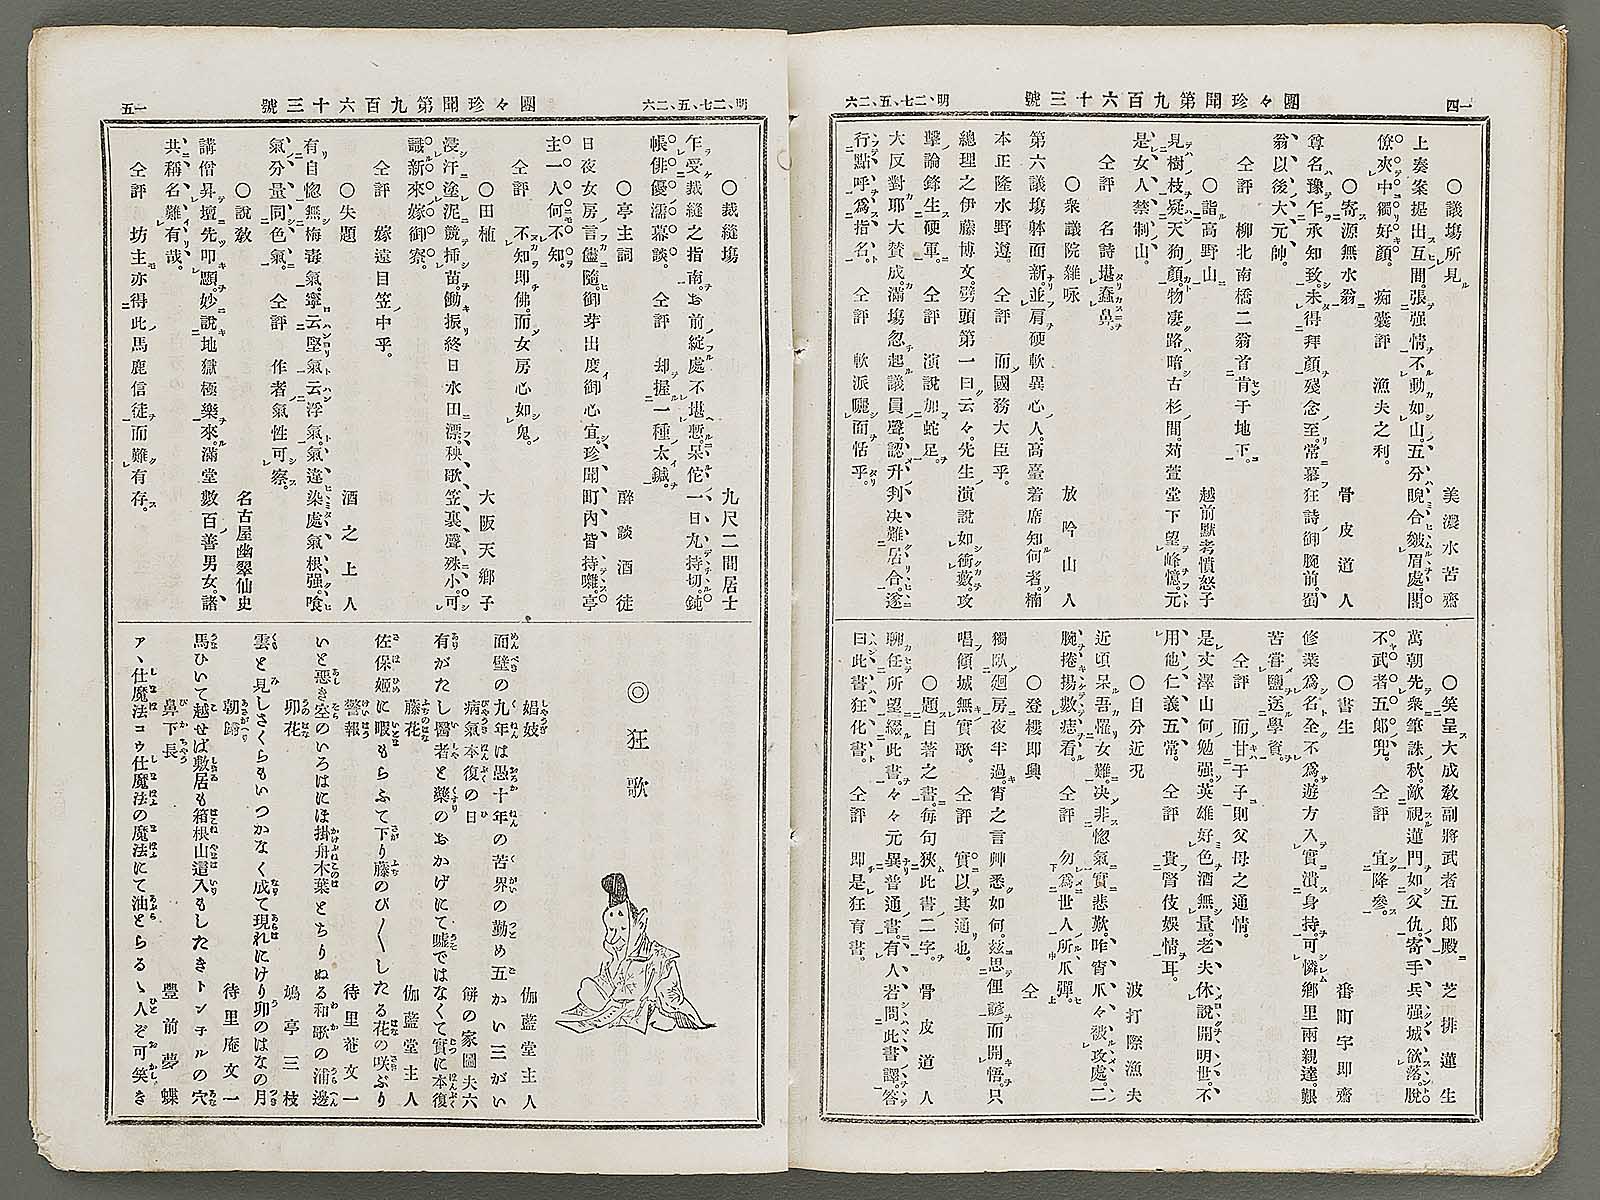 一四
團々珍聞第九百六十三號
明、二七、五、二六
○議塲所見 美濃水苦齋
上奏案挺出互間。張强情不動如山。五分睨合皺眉處。閣
僚夾中獨好顔。 痴囊評 漁夫之利。
○寄源無水翁 骨皮道人
尊名豫乍承知致。未得拜顔殘念至。常慕狂詩御腕前。蜀
翁以後大元帥。
仝評 柳北南橋二翁首肯于地下。
○詣高野山 越前默考憤怒子
見樹枝疑天狗顔。物凄路暗古杉間。苅萱堂下望峰憶。元
是女人禁制山。
仝評 名詩堪蠢鼻。
○衆議院雜咏 放吟山人
第六議塲躰而新。並肩硬軟異心人。高臺着席知何者。楠
本正隆水野遵。 仝評 而國務大臣乎。
總理之伊藤博文。劈頭第一曰云々。先生演說如衝藪。攻
擊論鋒生硬軍。 仝評 演說加蛇足。
大反對耶大賛成。滿塲忽起議員聲。認升判决難居合。遂
行點呼爲指名。 仝評 軟派曬而恬乎。
○笑呈大成敎副將武者五郎殿 芝排蓮生
萬朝先衆筆誅秋。敵視蓮門如父仇。寄手兵强城欲落。脫
不武者五郎兜。 仝評 宜降參。
○書生 番町宇即齋
修業爲名全不爲。遊方入實潰身持。可憐鄕里兩親達。艱
苦甞鹽送學資。
仝評 而甘于子則父母之通情。
是丈澤山何勉强。英雄好色酒無量。老夫休說開明世。不
用他仁義五常。 仝評 貴腎伎娯情耳。
○自分近況 波打際漁夫
近頃呆吾罹女難。决非惚氣實悲歎。昨宵爪々被攻處。二
腕捲揚數痣看。 仝評 勿爲世人所爪彈。
○登樓即興 仝
獨臥廻房夜半過。宵之言艸悉如何。玆思俚諺而開悟。只
唱傾城無實歌。 仝評 實以其通也。
○題自著之書。每句狹此書二字。 骨皮道人
聊任所望綴此書。々々元異普通書。有人若問此書譯。答
曰此書狂化書。 仝評 即是狂育書。
明、二七、五、二六
團々珍聞第九百六十三號
一五
○裁縫塲 九尺二間居士
乍受裁縫之指南。お前綻處不堪慙。呆佗一日丸持切。鈍
帳俳優濡幕談。 仝評 却握一種太鍼。
○亭主詞 醉談酒徒
日夜女房言儘隨。御芽出度御心宜。珍聞町內皆持囃。亭
主一人何不知。
仝評 不知即佛。而女房心如鬼。
○田植 大阪天鄕子
浸汗塗泥競挿苗。働振終日水田漂。秧歌笠裏聲殊小。可
識新來嫁御寮。
仝評 嫁遠目笠中乎。
○失題 酒之上人
有自惚無梅毒氣。寧云堅氣云浮氣。氣違染處氣根强。喰
氣分量同色氣。 仝評 作者氣性可察。
○說敎 名古屋幽翠仙史
講僧昇壇先叩顋。妙說地獄極樂來。滿堂數百善男女。諸
共稱名難有哉。
仝評 坊主亦得此馬鹿信徒而難有存。
◎狂歌
娼妓 伽藍堂主人
面壁の九年は愚十年の苦界の勤め五かい三がい
病氣本復の日 餅の家圖夫六
有がたし醫者と藥のおかげにて噓ではなくて實に本復
藤花 伽藍堂主人
佐保姬に暇もらふて下り藤のび〱したる花の咲ぶり
警報 待里菴文一
いと惡き空のいろはにほ掛舟木葉とちりぬる和歌の浦邊
卯花 鳩亭三枝
雲と見しさくらもいつかなく成て現れにけり卯のはなの月
朝歸 待里庵文一
馬ひいて越せば敷居も箱根山這入もしたきトン子ルの穴
鼻下長 豐前夢蝶
アヽ仕魔法コウ仕魔法の魔法にて油とらるゝ人ぞ可笑き